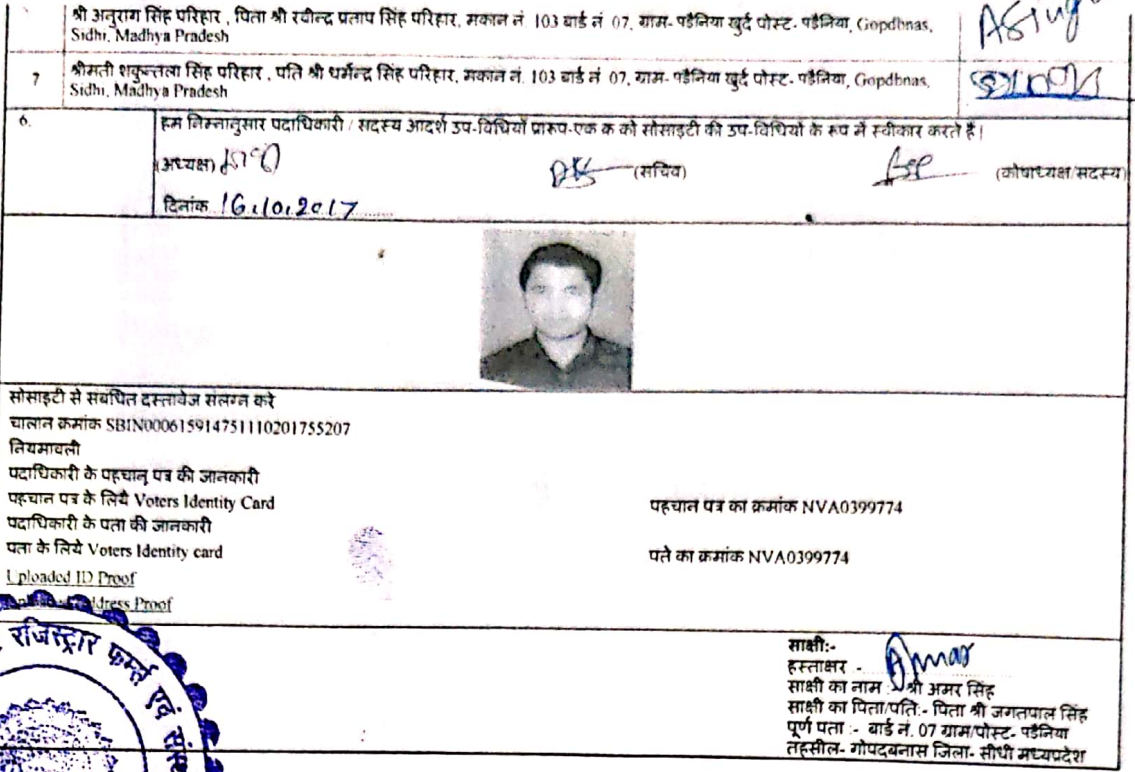 श्री अनुराग सिंह परिहार , पिता श्री रवीन्द्र प्रताप सिंह परिहार, मकान नं 103 वार्ड नं 07, ग्राम- पडैनिया खुर्द पोस्ट- पडैनिया, Gopdbnas,
Sidhi, Madhya Pradesh
ASing
7
श्रीमती शकुन्तला सिंह परिहार , पति श्री धर्मेन्द्र सिंह परिहार, मकान नं. 103 वार्ड नं 07, ग्राम- पडैनिया खुर्द पोस्ट- पडैनिया, Gopdbnas,
Sidhi, Madhya Pradesh
6.
हम निम्नानुसार पदाधिकारी / सदस्य आदर्श उप-विधियाँ प्रारूप-एक क को सोसाइटी की उप-विधियों के रूप में स्वीकार करते हैं |
(अध्यक्ष) (सचिव) (कोषाध्यक्ष/सदस्य)
दिनांक 16.10.2017
सोसाइटी से संबंधित दस्तावेज संलग्न करे
चालान क्रमांक SBIN000615914751110201755207
नियमावली
पदाधिकारी के पहचान पत्र की जानकारी
पहचान पत्र के लिये Voters Identity Card पहचान पत्र का क्रमांक NVA0399774
पदाधिकारी के पता की जानकारी
पता के लिये Voters Identity card पते का क्रमांक NVA0399774
Uploaded ID Proof
Address Proof
रजिस्ट्रार फर्म्स एवं
साक्षी:-
हस्ताक्षर - Amar
साक्षी का नाम :- श्री अमर सिंह
साक्षी का पिता/पति:- पिता श्री जगतपाल सिंह
पूर्ण पता :- वार्ड नं. 07 ग्राम/पोस्ट- पडैनिया
तहसील- गोपदबनास जिला- सीधी मध्यप्रदेश